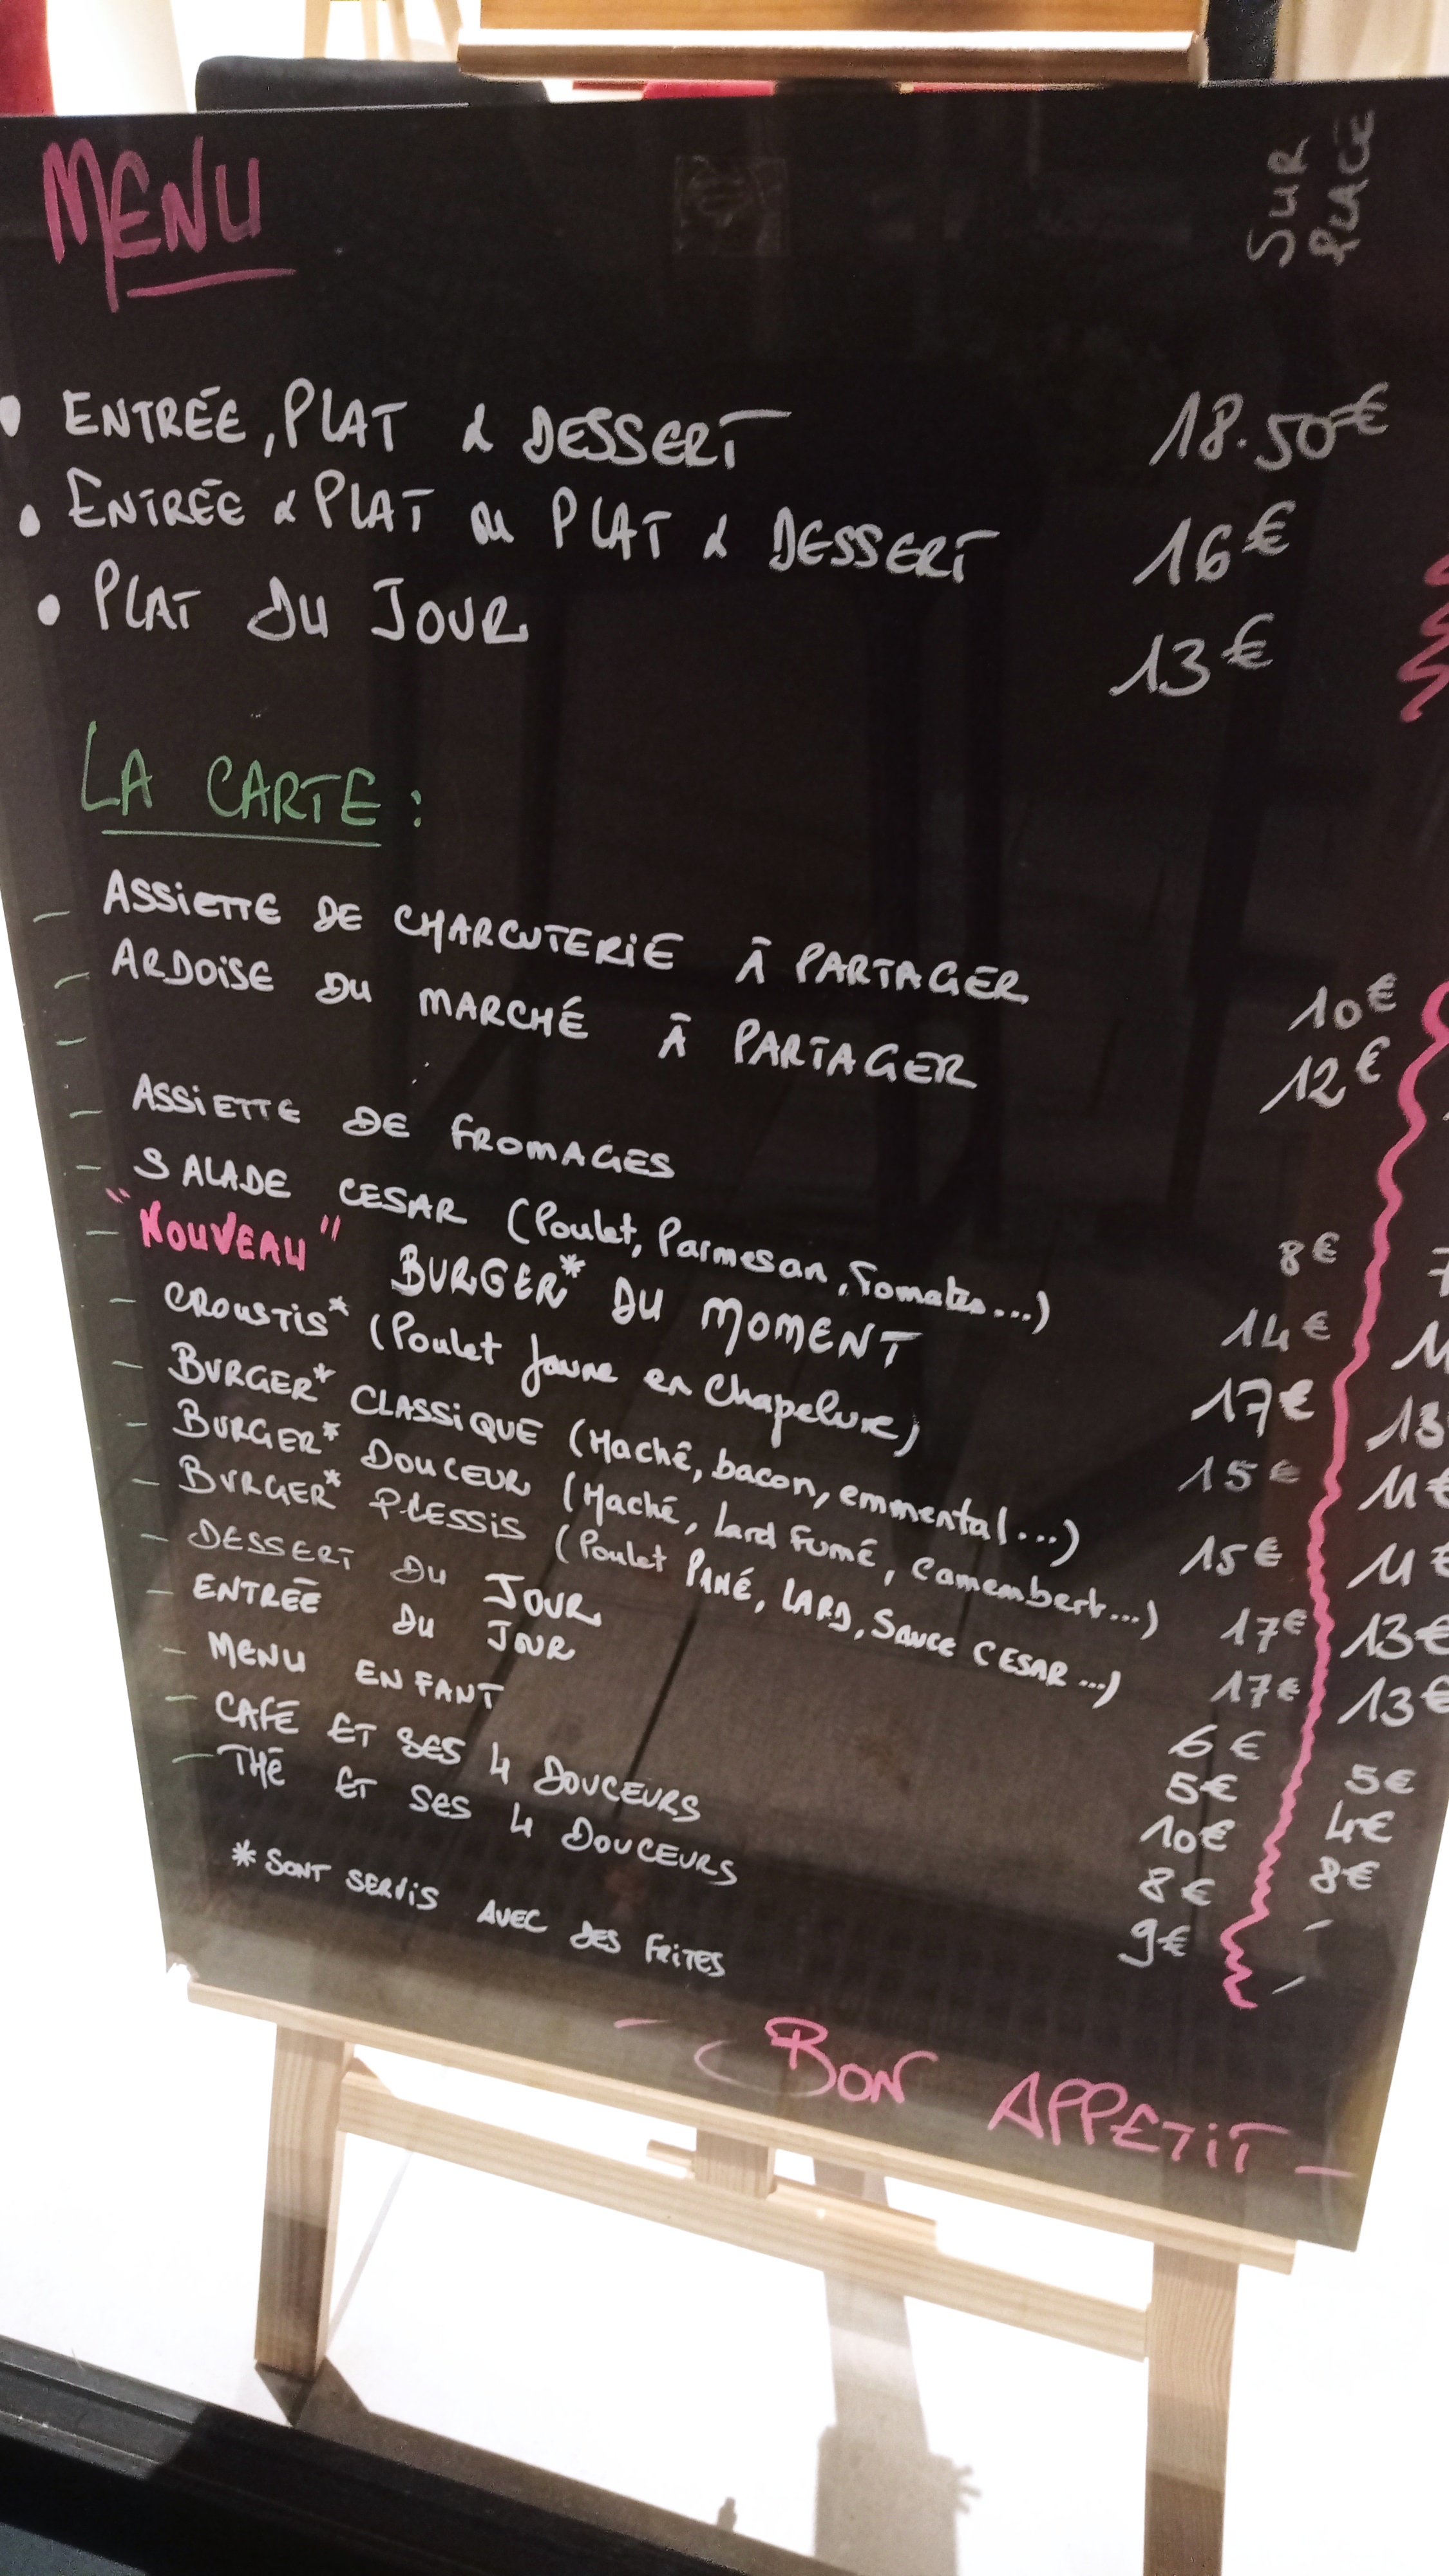 MENU
SUR PLACE
• ENTRÉE, PLAT & DESSERT 18.50€
• ENTRÉE & PLAT ou PLAT & DESSERT 16€
• PLAT DU JOUR 13€
LA CARTE :
- ASSIETTE DE CHARCUTERIE À PARTAGER 10€
- ARDOISE DU MARCHÉ À PARTAGER 12€
- ASSIETTE DE FROMAGES 8€
- SALADE CESAR (Poulet, Parmesan, Tomates...) 14€
- "NOUVEAU" BURGER* DU MOMENT 17€ 13
- CROUSTIS* (Poulet Jaune en Chapelure) 15€ 11€
- BURGER* CLASSIQUE (Haché, bacon, emmental...) 15€ 11€
- BURGER* DOUCEUR (Haché, lard fumé, camembert...) 17€ 13€
- BURGER* PLESSIS (Poulet PANÉ, LARD, Sauce CESAR...) 17€ 13€
- DESSERT DU JOUR 6€ 5€
- ENTRÉE DU JOUR 5€ 4€
- MENU ENFANT 10€ 8€
- CAFÉ ET SES 4 DOUCEURS 8€ -
- THÉ ET SES 4 DOUCEURS 9€ -
* SONT SERVIS AVEC DES FRITES
- BON APPETIT -